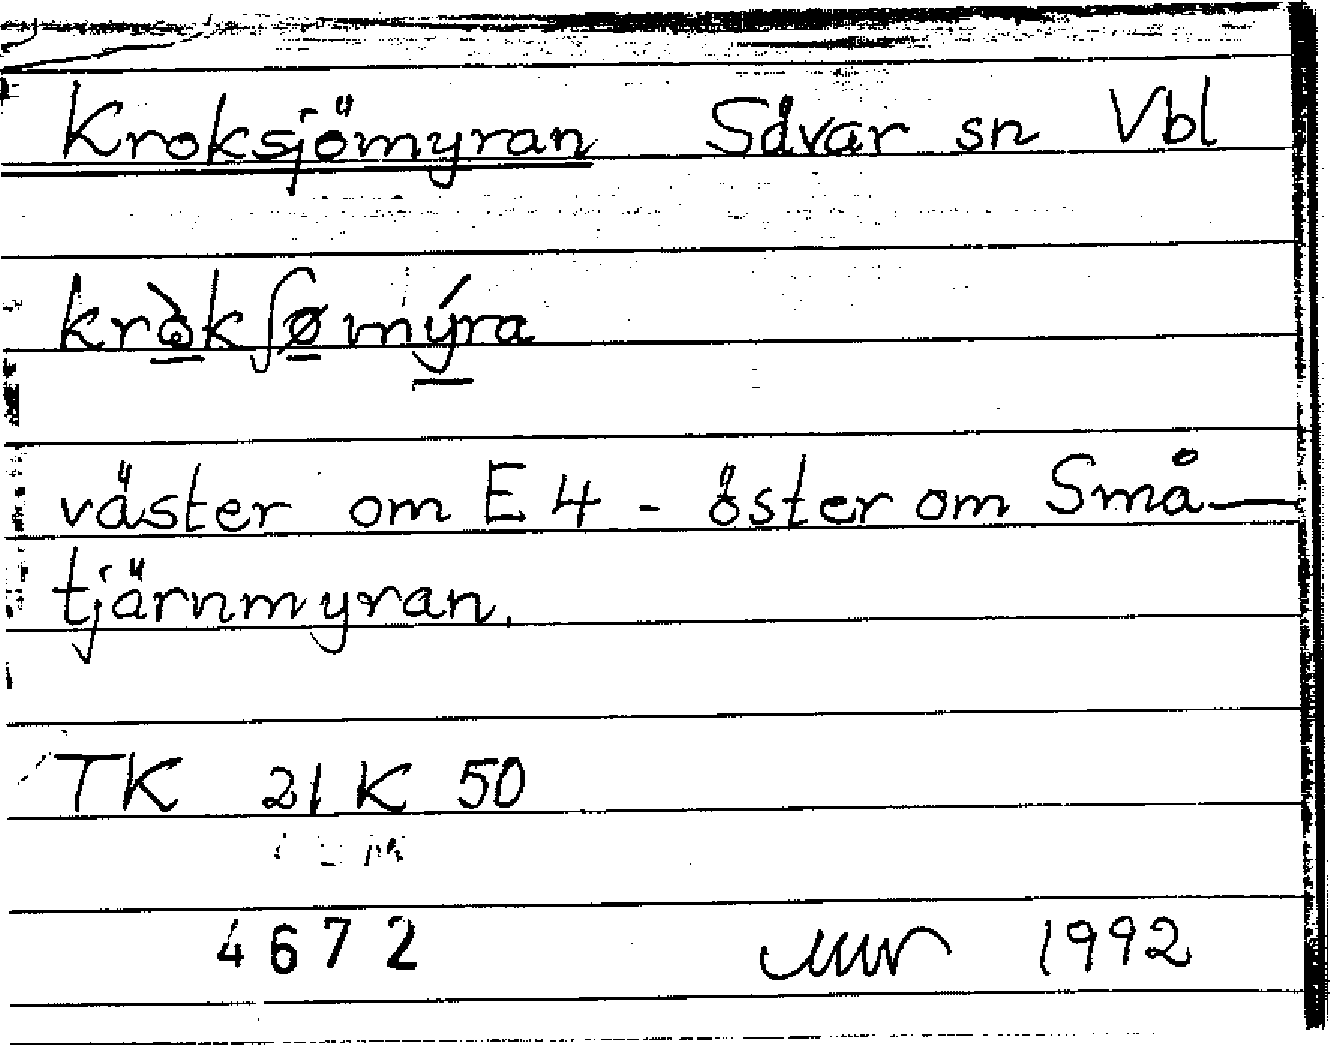 Kroksjömyran Sävar sn Vbl
kròkʃømýra
väster om E4 - öster om Små-
tjärnmyran.
TK 21 K 50
4672 1992